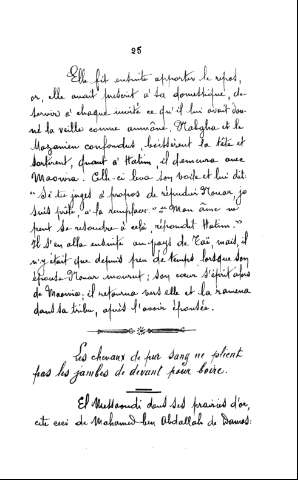 25
Elle fit ensuite apporter le repas,
or, elle avait prescrit à sa domestique, de
servir à chaque invité ce qu'il lui avait don-
né la veille comme aumône. Nabgha et le
Mozanien confondus, baissèrent la tête et
sortirent, quant à Hatim, il demeura avec
Maouia. Celle-ci leva son voile et lui dit:
"Si tu juges à propos de répudier Nouar, je
suis prête, à la remplacer" = "Mon âme ne
peut se résoudre à cela, répondit Hatim."
Il s'en alla ensuite au pays de Taï, mais, il
n'y était que depuis peu de temps lorsque son
épouse Nouar mourut; son cœur s'éprit alors
de Maouia, il retourna vers elle et la ramena
dans sa tribu, après l'avoir épousée.
Les chevaux de pur sang ne plient
pas les jambes de devant pour boire.
El Messaoudi dans ses prairies d'or,
cite ceci de Mohamed ben Abdallah de Damas: